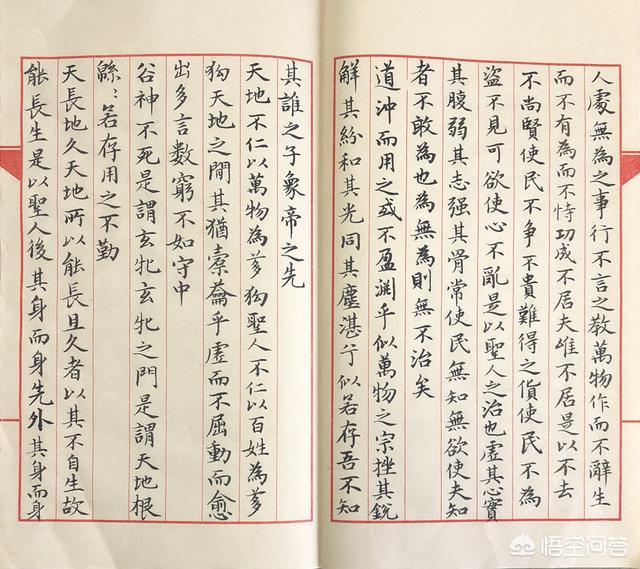 人處無為之事行不言之教萬物作而不辭生
而不有為而不恃功成不居夫唯不居是以不去
不尚賢使民不爭不貴難得之貨使民不為
盜不見可欲使心不亂是以聖人之治也虛其心實
其腹弱其志强其骨常使民無知無欲使夫知
者不敢為也為無為則無不治矣
道沖而用之或不盈淵乎似萬物之宗挫其銳
解其紛和其光同其塵湛兮似若存吾不知
其誰之子象帝之先
天地不仁以萬物為芻狗聖人不仁以百姓為芻
狗天地之間其猶橐籥乎虛而不屈動而愈
出多言數窮不如守中
谷神不死是謂玄牝玄牝之門是謂天地根
緜〻若存用之不勤
天長地久天地所以能長且久者以其不自生故
能長生是以聖人後其身而身先外其身而身
悟空问答